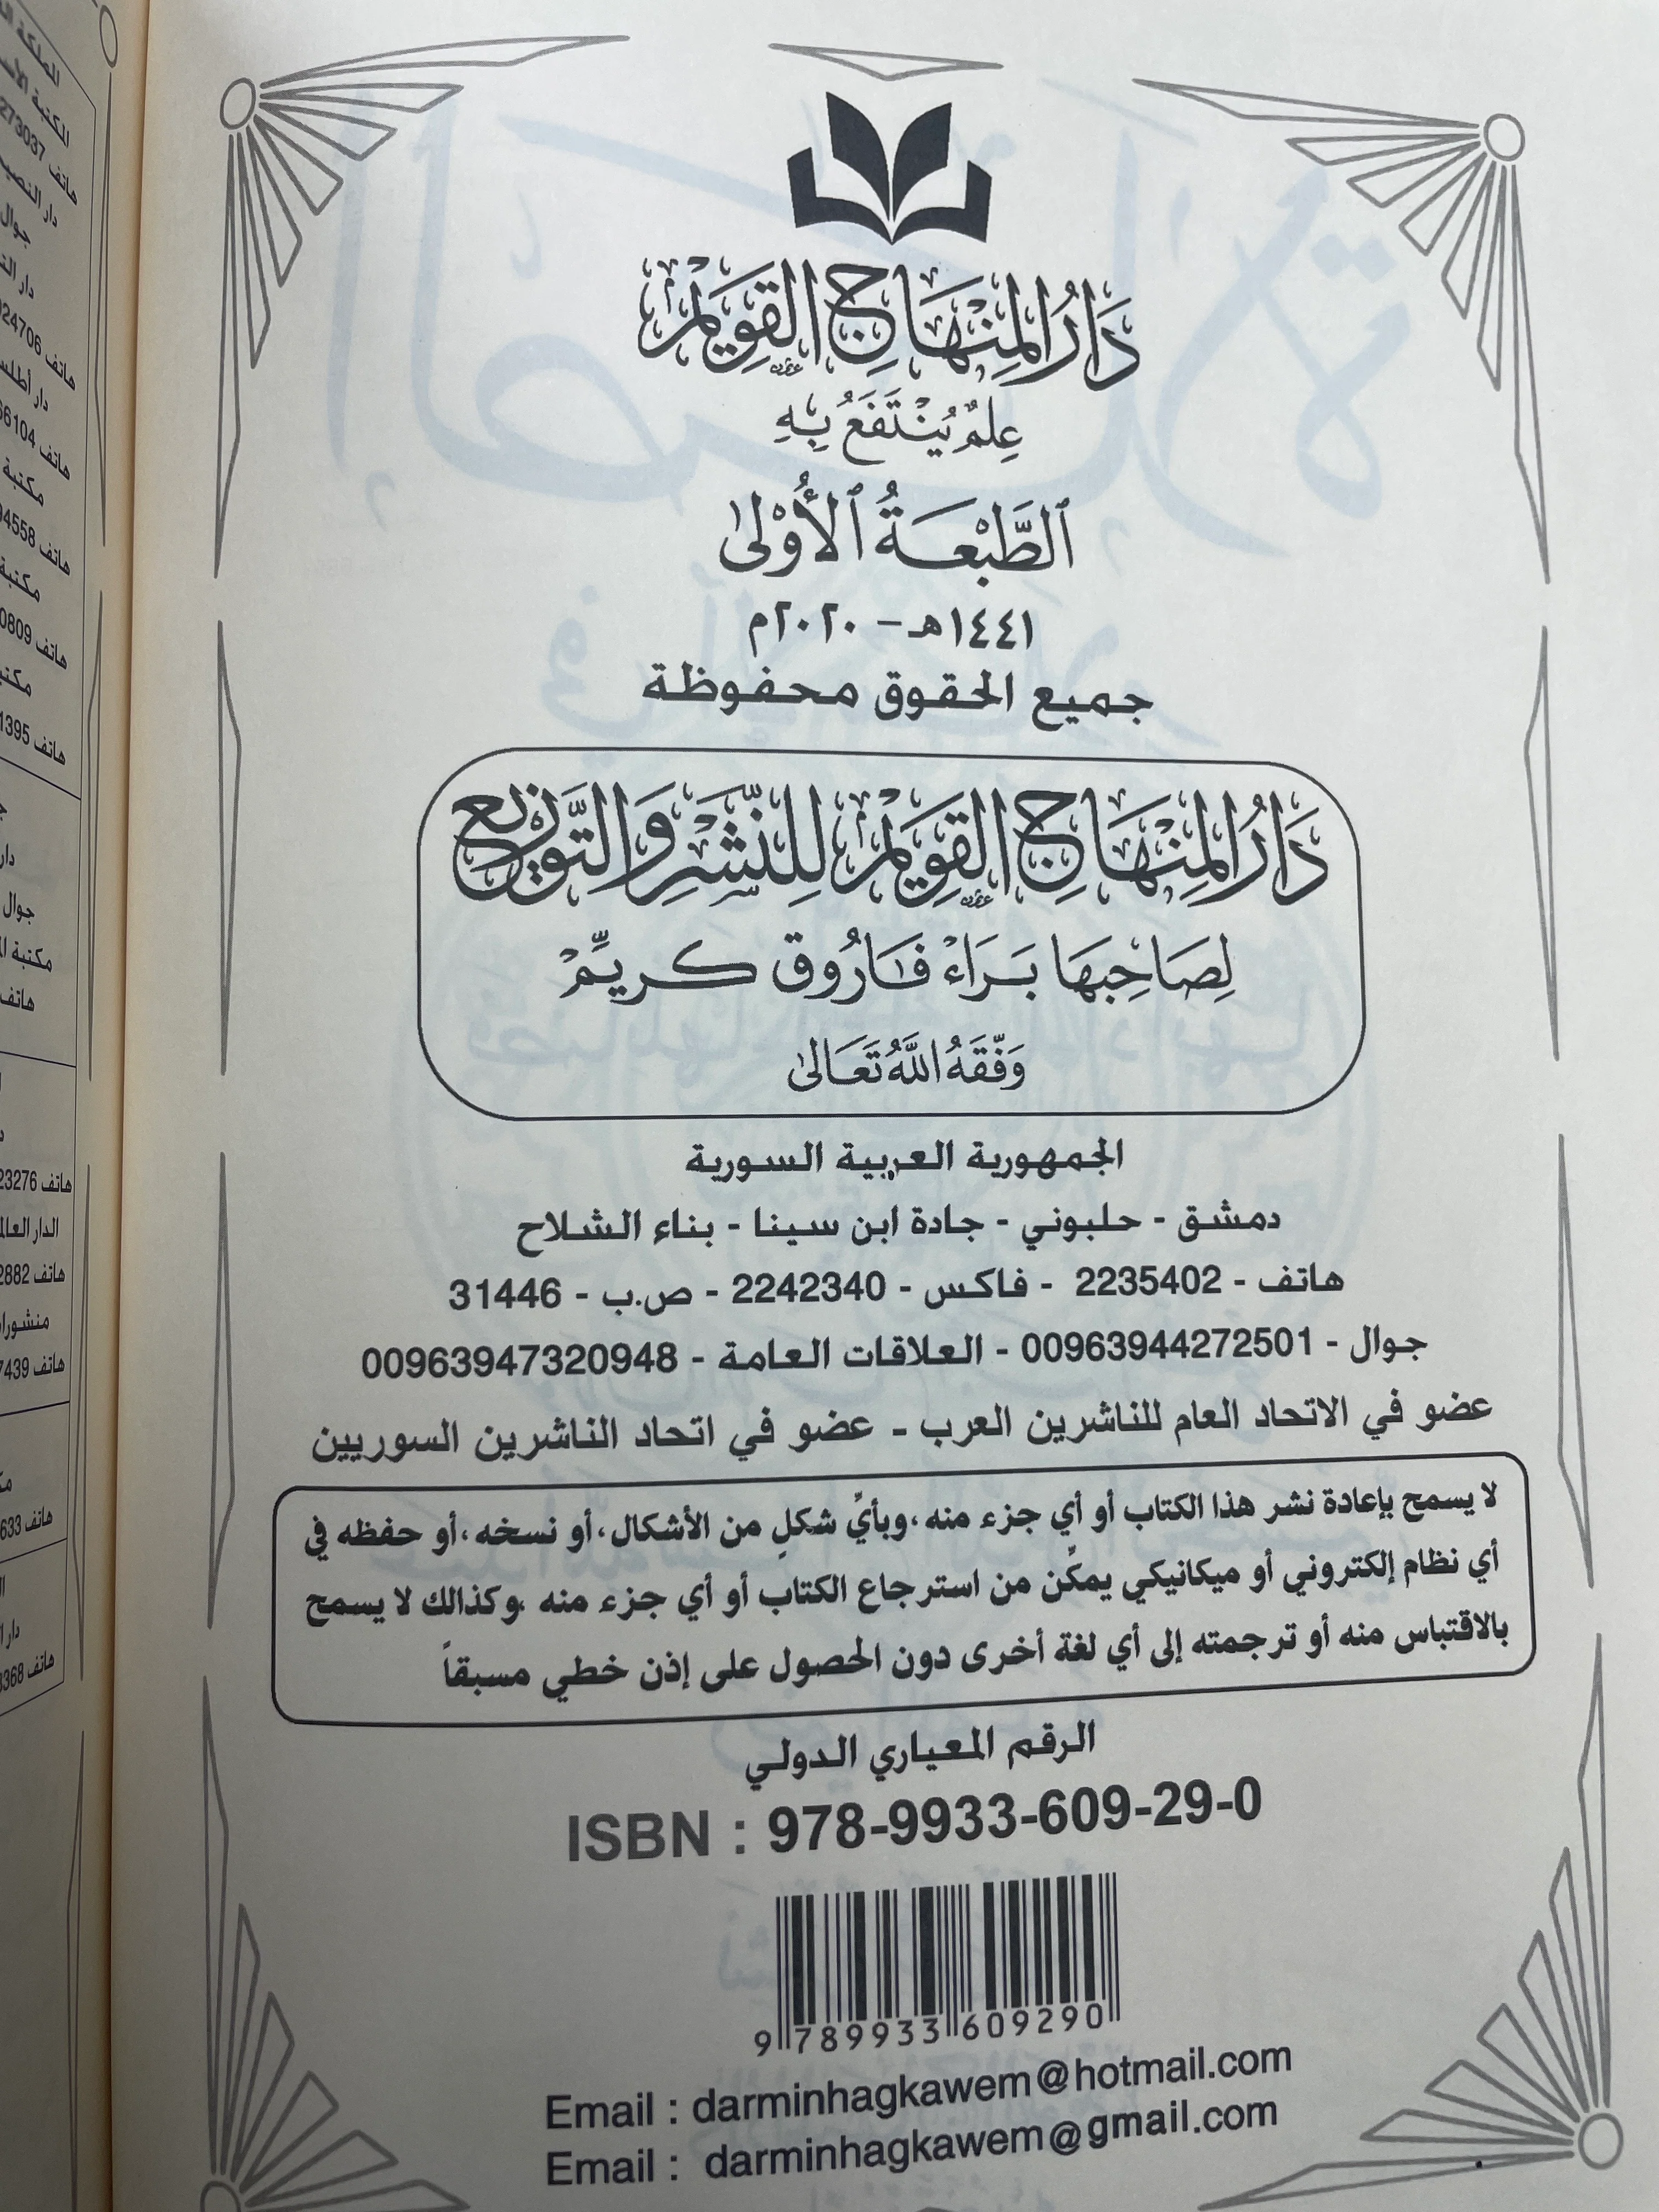 دَارُ المِنْهَاجِ القَوِيْمِ
عِلمٌ يُنْتَفَعُ بِهِ
اَلطَّبْعَةُ اَلْأُوْلىٰ
١٤٤١هـ - ٢٠٢٠م
جميع الحقوق محفوظة
دَارُ المِنْهَاجِ القَوِيْمِ لِلنَّشْرِ وَالتَّوزيع
لِصَاحِبهَا بَرَاءْ فَارُوق كريِّمْ
وَفَّقَهُ اللَّهُ تَعَالىٰ
الجمهورية العربية السورية
دمشق - حلبوني - جادة ابن سينا - بناء الشلاح
هاتف - 2235402 - فاكس - 2242340 - ص.ب - 31446
جوال - 00963944272501 - العلاقات العامة - 00963947320948
عضو في الاتحاد العام للناشرين العرب - عضو في اتحاد الناشرين السوريين
لا يسمح بإعادة نشر هذا الكتاب أو أي جزء منه ،وبأيِّ شكلٍ من الأشكال ،أو نسخه ،أو حفظه في
أي نظام إلكتروني أو ميكانيكي يمكِّن من استرجاع الكتاب أو أي جزء منه ،وكذالك لا يسمح
بالاقتباس منه أو ترجمته إلى أي لغة أخرى دون الحصول على إذن خطي مسبقاً
الرقم المعياري الدولي
ISBN : 978-9933-609-29-0
9 789933 609290
Email : darminhagkawem@hotmail.com
Email : darminhagkawem@gmail.com